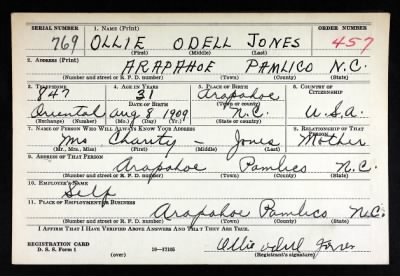 SERIAL NUMBER 1. NAME (Print) ORDER NUMBER
769 OLLIE ODELL JONES 457
(First) (Middle) (Last)
2. ADDRESS (Print)
ARAPAHOE PAMLICO N.C.
(Number and street or R. F. D. number) (Town) (County) (State)
3. TELEPHONE 4. AGE IN YEARS 5. PLACE OF BIRTH 6. COUNTRY OF CITIZENSHIP
847 31 Arapahoe
DATE OF BIRTH (Town or county)
Oriental Aug 8 1909 N.C. U.S.A.
(Exchange) (Number) (Mo.) (Day) (Yr.) (State or country)
7. NAME OF PERSON WHO WILL ALWAYS KNOW YOUR ADDRESS 8. RELATIONSHIP OF THAT PERSON
Mrs Charity – Jones Mother
(Mr., Mrs., Miss) (First) (Middle) (Last)
9. ADDRESS OF THAT PERSON
Arapahoe Pamlico N.C.
(Number and street or R. F. D. number) (Town) (County) (State)
10. EMPLOYER'S NAME
Self
11. PLACE OF EMPLOYMENT OR BUSINESS
Arapahoe Pamlico N.C.
(Number and street or R. F. D. number) (Town) (County) (State)
I AFFIRM THAT I HAVE VERIFIED ABOVE ANSWERS AND THAT THEY ARE TRUE.
REGISTRATION CARD
D. S. S. Form 1 16—17105 Ollie Odell Jones
(over) (Registrant's signature)